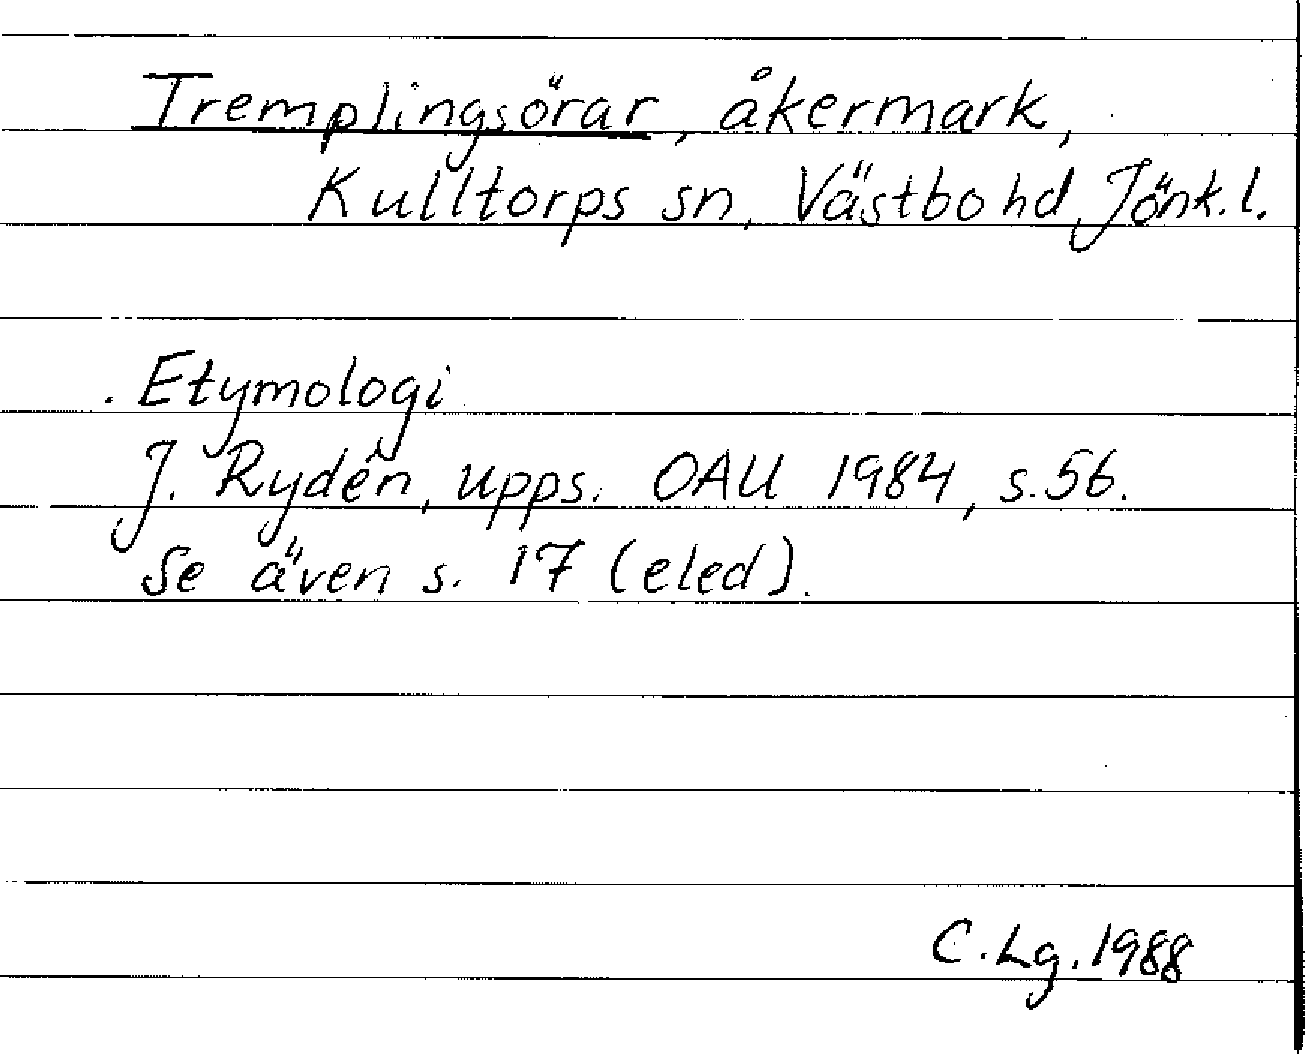 Tremplingsörar, åkermark,
Kulltorps sn, Västbo hd, Jönk. l.
Etymologi
J. Rydén, upps. OAU 1984, s. 56.
Se även s. 17 (eled).
C. Lg. 1988